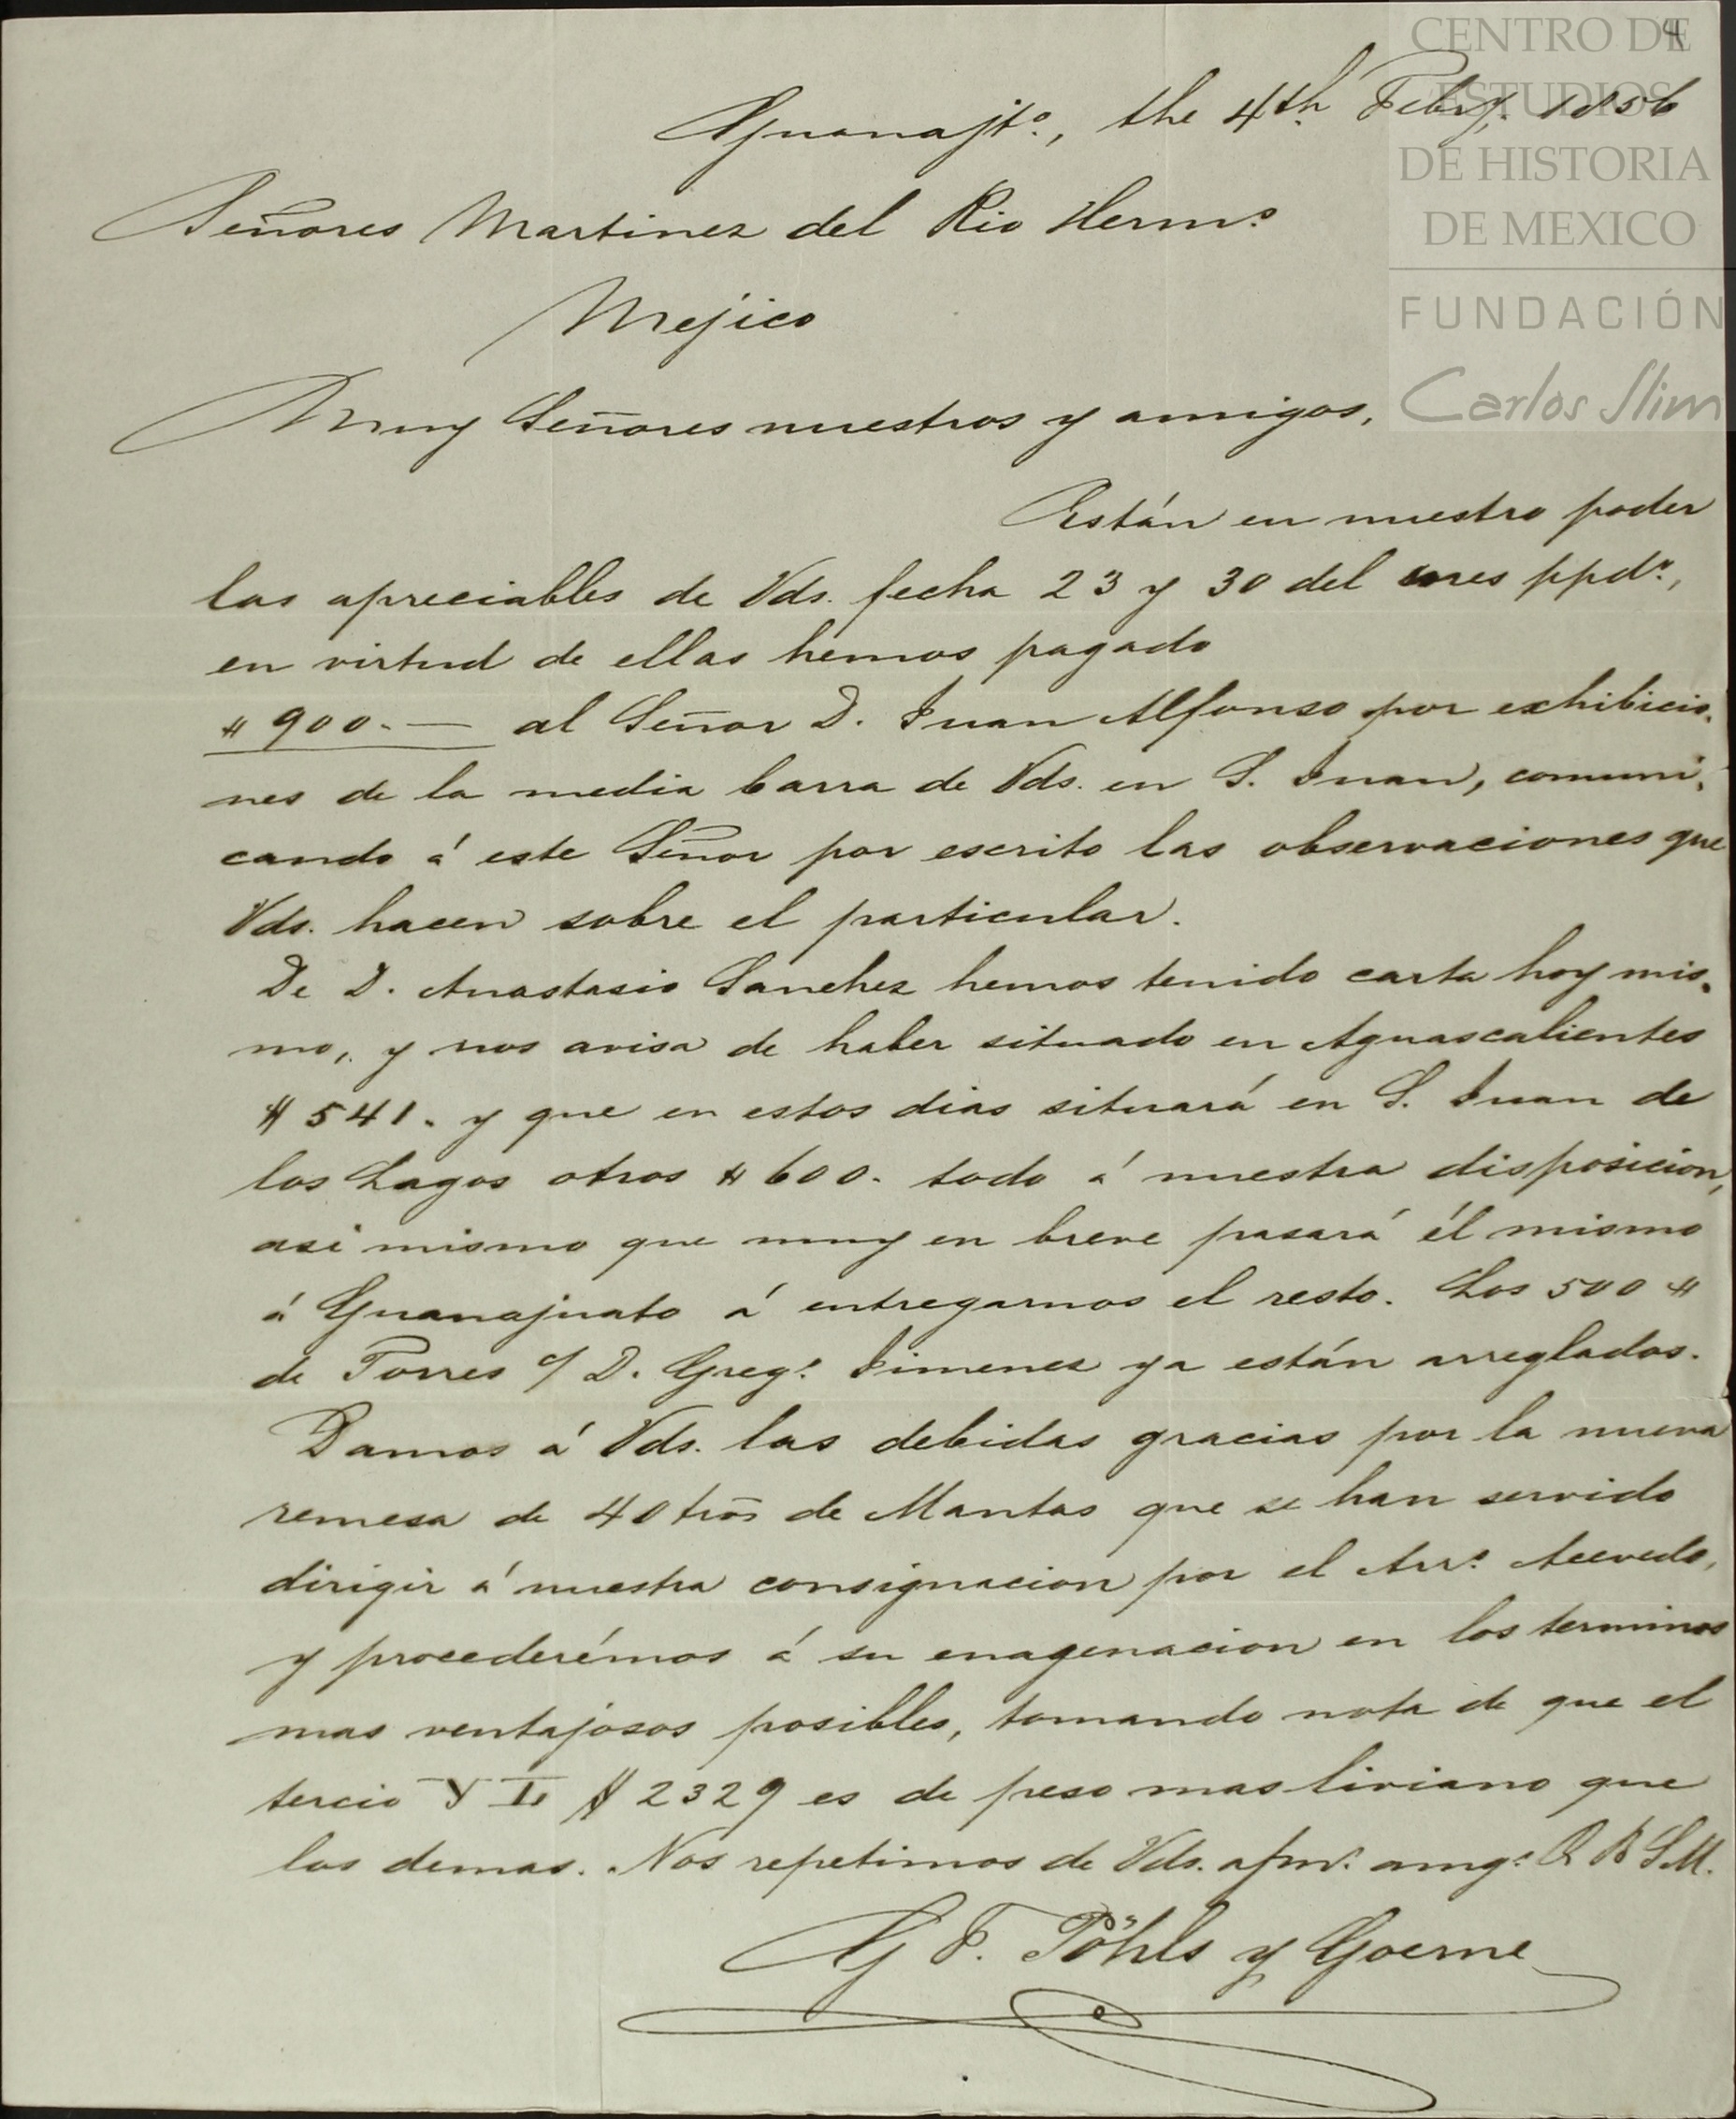 4
CENTRO DE
ESTUDIOS
DE HISTORIA
DE MEXICO
FUNDACIÓN
Carlos Slim
Guanajto., the 4th. Feby. 1856
Señores Martinez del Rio Hermos.
Mejico
Muy Señores nuestros y amigos,
Están en nuestro poder
las apreciables de Vds. fecha 23 y 30 del mes ppdo.,
en virtud de ellas hemos pagado
$ 900.— al Señor D. Juan Alfonso por exhibicio-
nes de la media barra de Vds. en S. Juan, comuni-
cando á este Señor por escrito las observaciones que
Vds. hacen sobre el particular.
De D. Anastasio Sanchez hemos tenido carta hoy mis-
mo, y nos avisa de haber situado en Aguascalientes
$ 541. y que en estos dias situará en S. Juan de
los Lagos otros $ 600. todo á nuestra disposicion,
asi mismo que muy en breve pasará él mismo
á Guanajuato á entregarnos el resto. Los 500 $
de Torres c/ D. Grego. Jimenez ya están arreglados.
Damos á Vds. las debidas gracias por la nueva
remesa de 40 de Mantas que se han servido
dirigir á nuestra consignacion por el Arro. Acevedo,
y procederémos á su enagenacion en los terminos
mas ventajosos posibles, tomando nota de que el
tercio 2329 es de peso mas liviano que
los demas. Nos repetimos de Vds. afmos. amgs. Q B S.M.
G F. Pöhls y Goerne